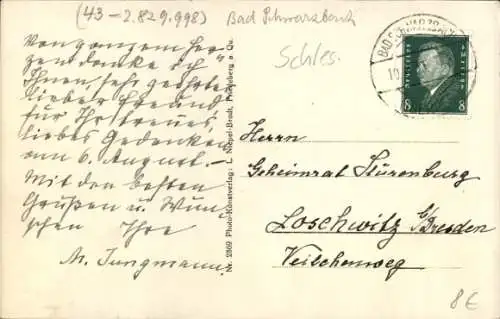 (43-2.829.998)
Bad Schwarzbach
Schles.
Von ganzem Her-
zen danke ich
Ihnen, sehr geehrter
lieber Freund
für Ihr treues,
liebes Gedenken
am 6. August.-
Mit den besten
Grüßen u. Wün-
schen Ihre
M. Jungmann.
Nr. 2369 Photo-Kunstverlag: L. Niepel-Brodt, Friedeberg a. Qu.
8 8
Herrn
Geheimrat Stürenburg
Loschwitz b/Dresden
Veilchenweg
8€